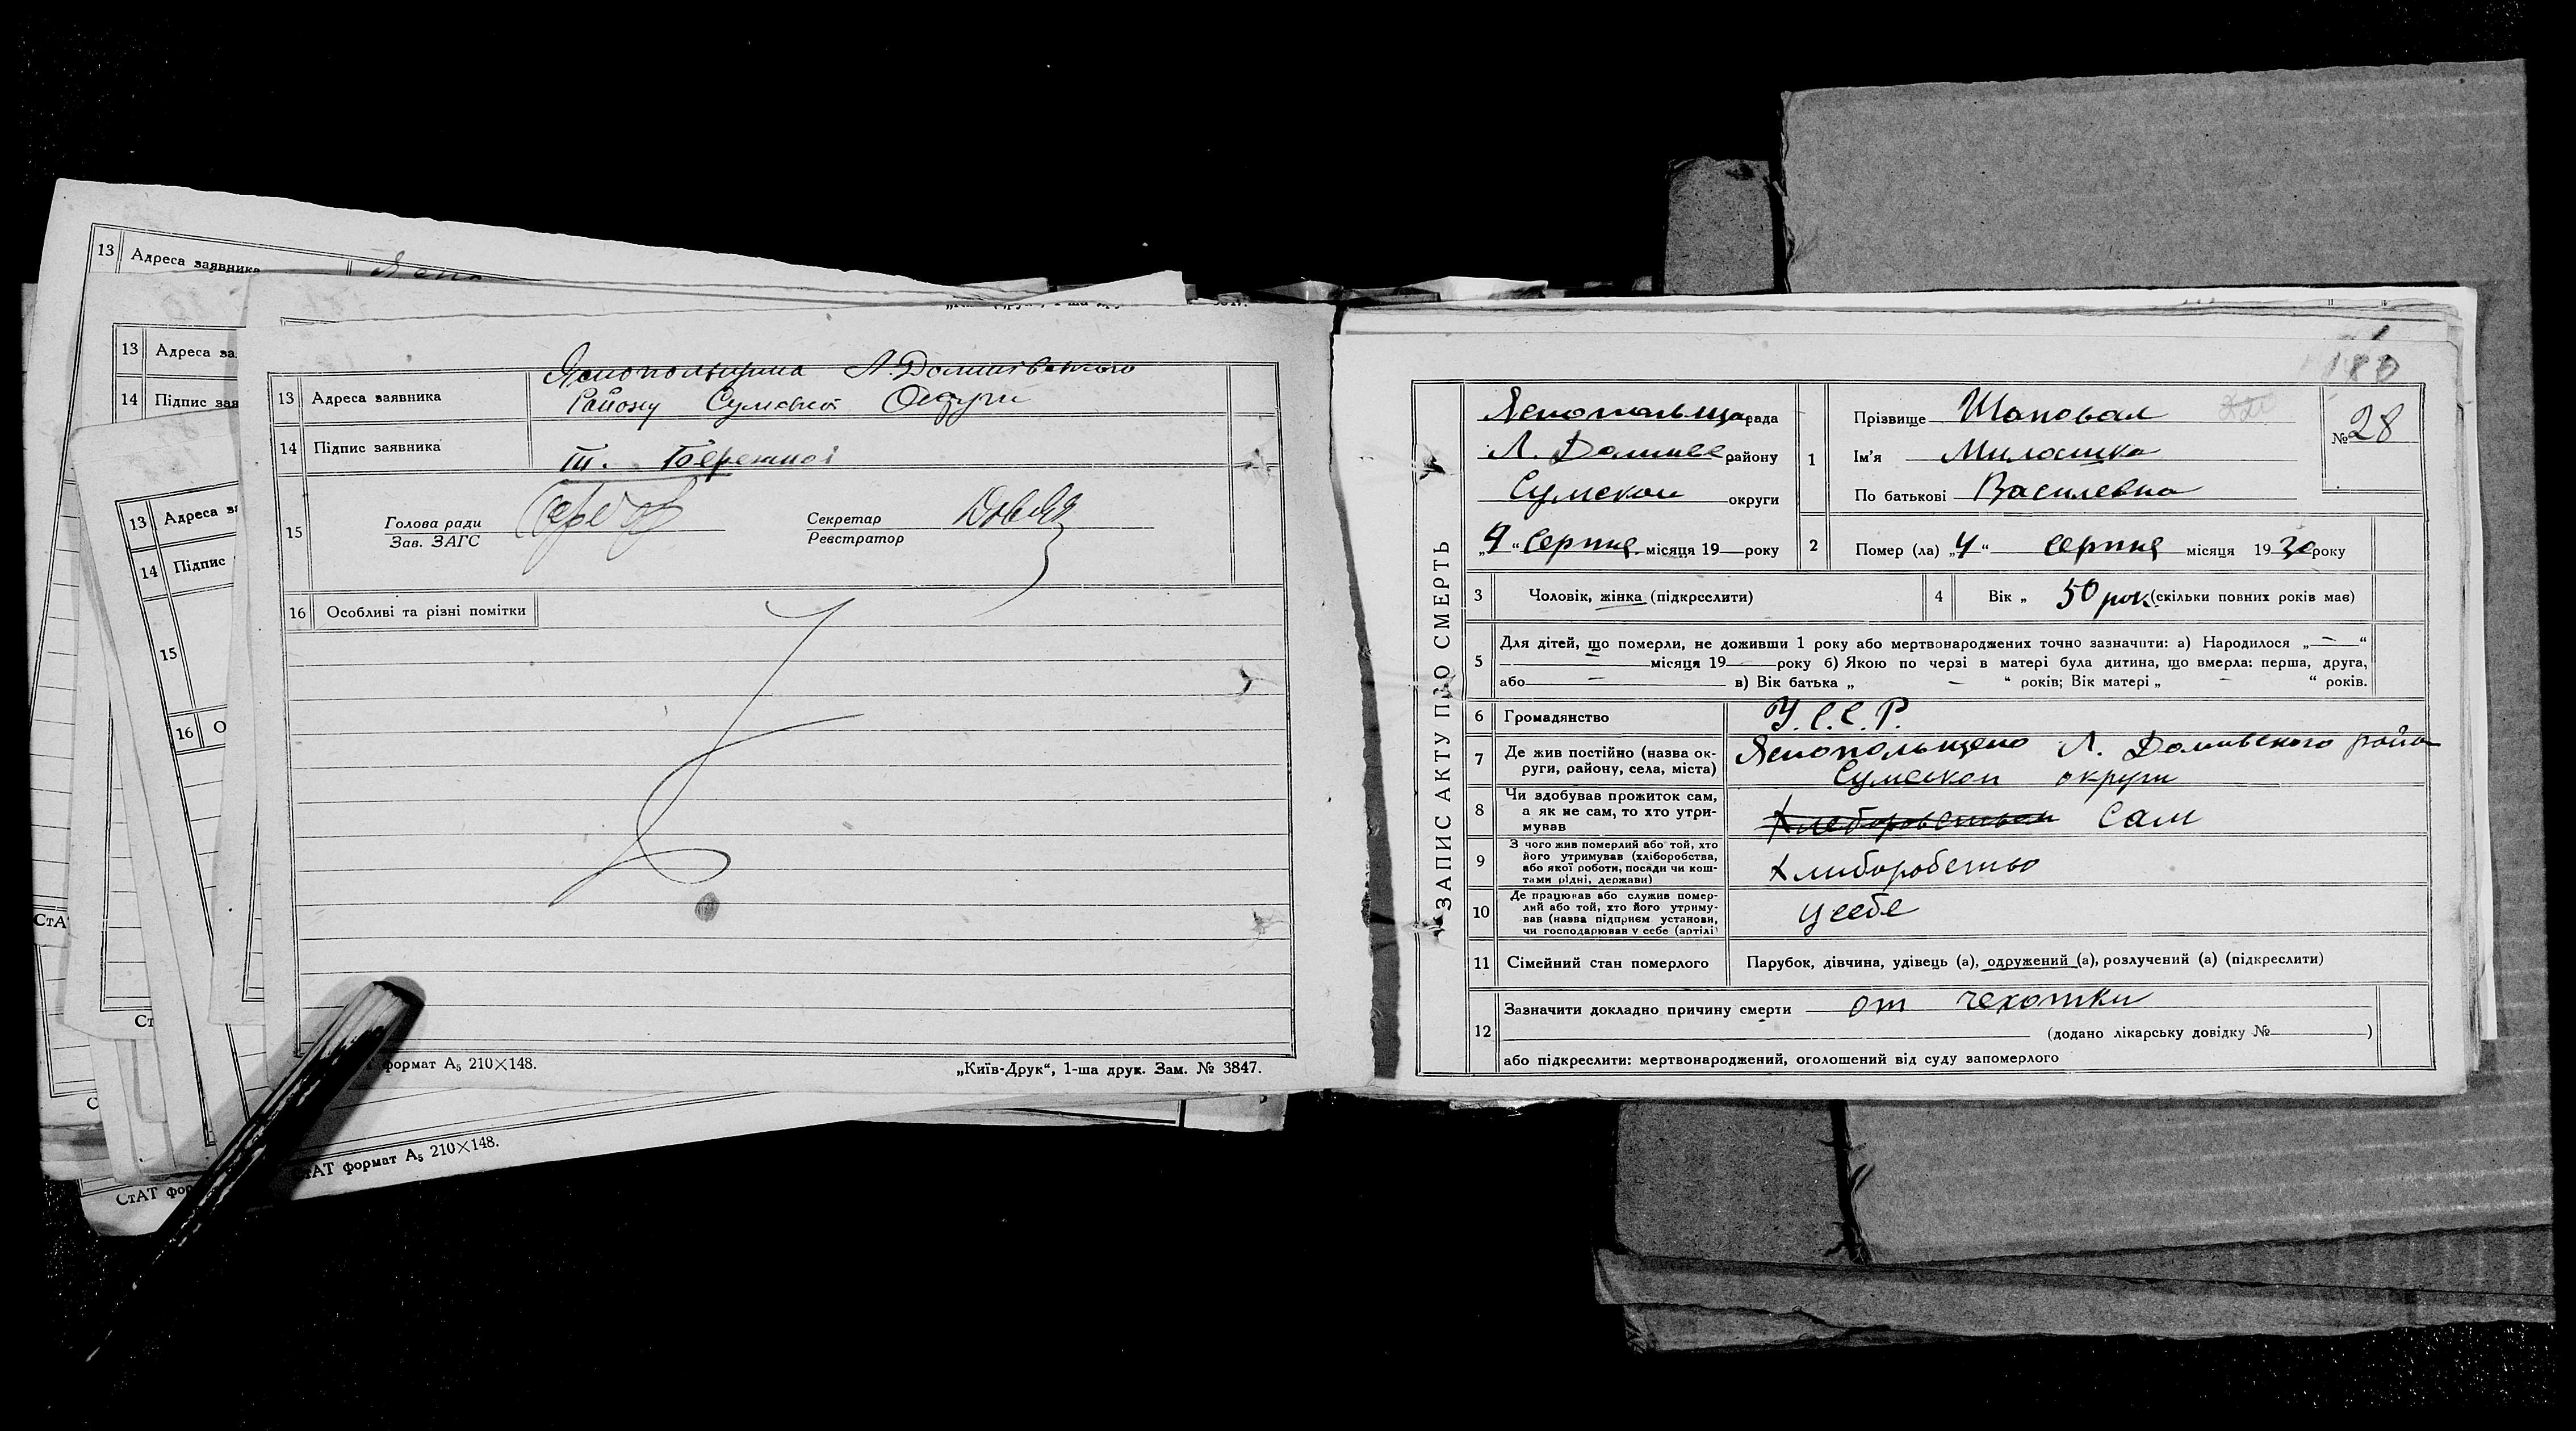 13 Адреса заявника
13 Адреса за
14 Підпис зая
13 Адреса з
14 Підпис
15
16 О
13 Адреса заявника
Яснопольщина Л. Долинівського
Району Сумської Округи
14 Підпис заявника
Бережної
15 Голова ради
Зав. ЗАГС
Секретар
Реєстратор
16 Особливі та різні помітки
формат А₅ 210×148.
„Київ-Друк“, 1-ша друк. Зам. № 3847.
СтАТ формат А₅ 210×148.
СтАТ фор
180
ЗАПИС АКТУ ПРО СМЕРТЬ
Яснопольща рада
Л. Долинсе району
Сумскои округи
„4“ Серпня місяця 19 — року
1
Прізвище Шаповал
Ім'я Милашка
По батькові Василевна
№ 28
2 Помер (ла) „4“ серпня місяця 1930 року
3 Чоловік, жінка (підкреслити)
4 Вік „ 50 рок (скільки повних років має)
5 Для дітей, що померли, не доживши 1 року або мертвонароджених точно зазначити: а) Народилося „—“
— місяця 19 — року б) Якою по черзі в матері була дитина, що вмерла: перша, друга,
або — в) Вік батька „ — “ років; Вік матері „ — “ років.
6 Громадянство У.С.С.Р.
7 Де жив постійно (назва ок-
руги, району, села, міста)
Яснопольщено Л. Долинвского район
Сумскои округи
8 Чи здобував прожиток сам,
а як не сам, то хто утри-
мував
Сам
9 З чого жив померлий або той, хто
його утримував (хліборобства,
або якої роботи, посади чи кош-
тами рідні, держави)
Хлиборобство
10 Де працював або служив помер-
лий або той, хто його утриму-
вав (назва підприєм установи,
чи господарював у себе (артілі)
у себе
11 Сімейний стан померлого Парубок, дівчина, удівець (а), одружений (а), розлучений (а) (підкреслити)
12 Зазначити докладно причину смерти от чехотки
(додано лікарську довідку № — )
або підкреслити: мертвонароджений, оголошений від суду запомерлого